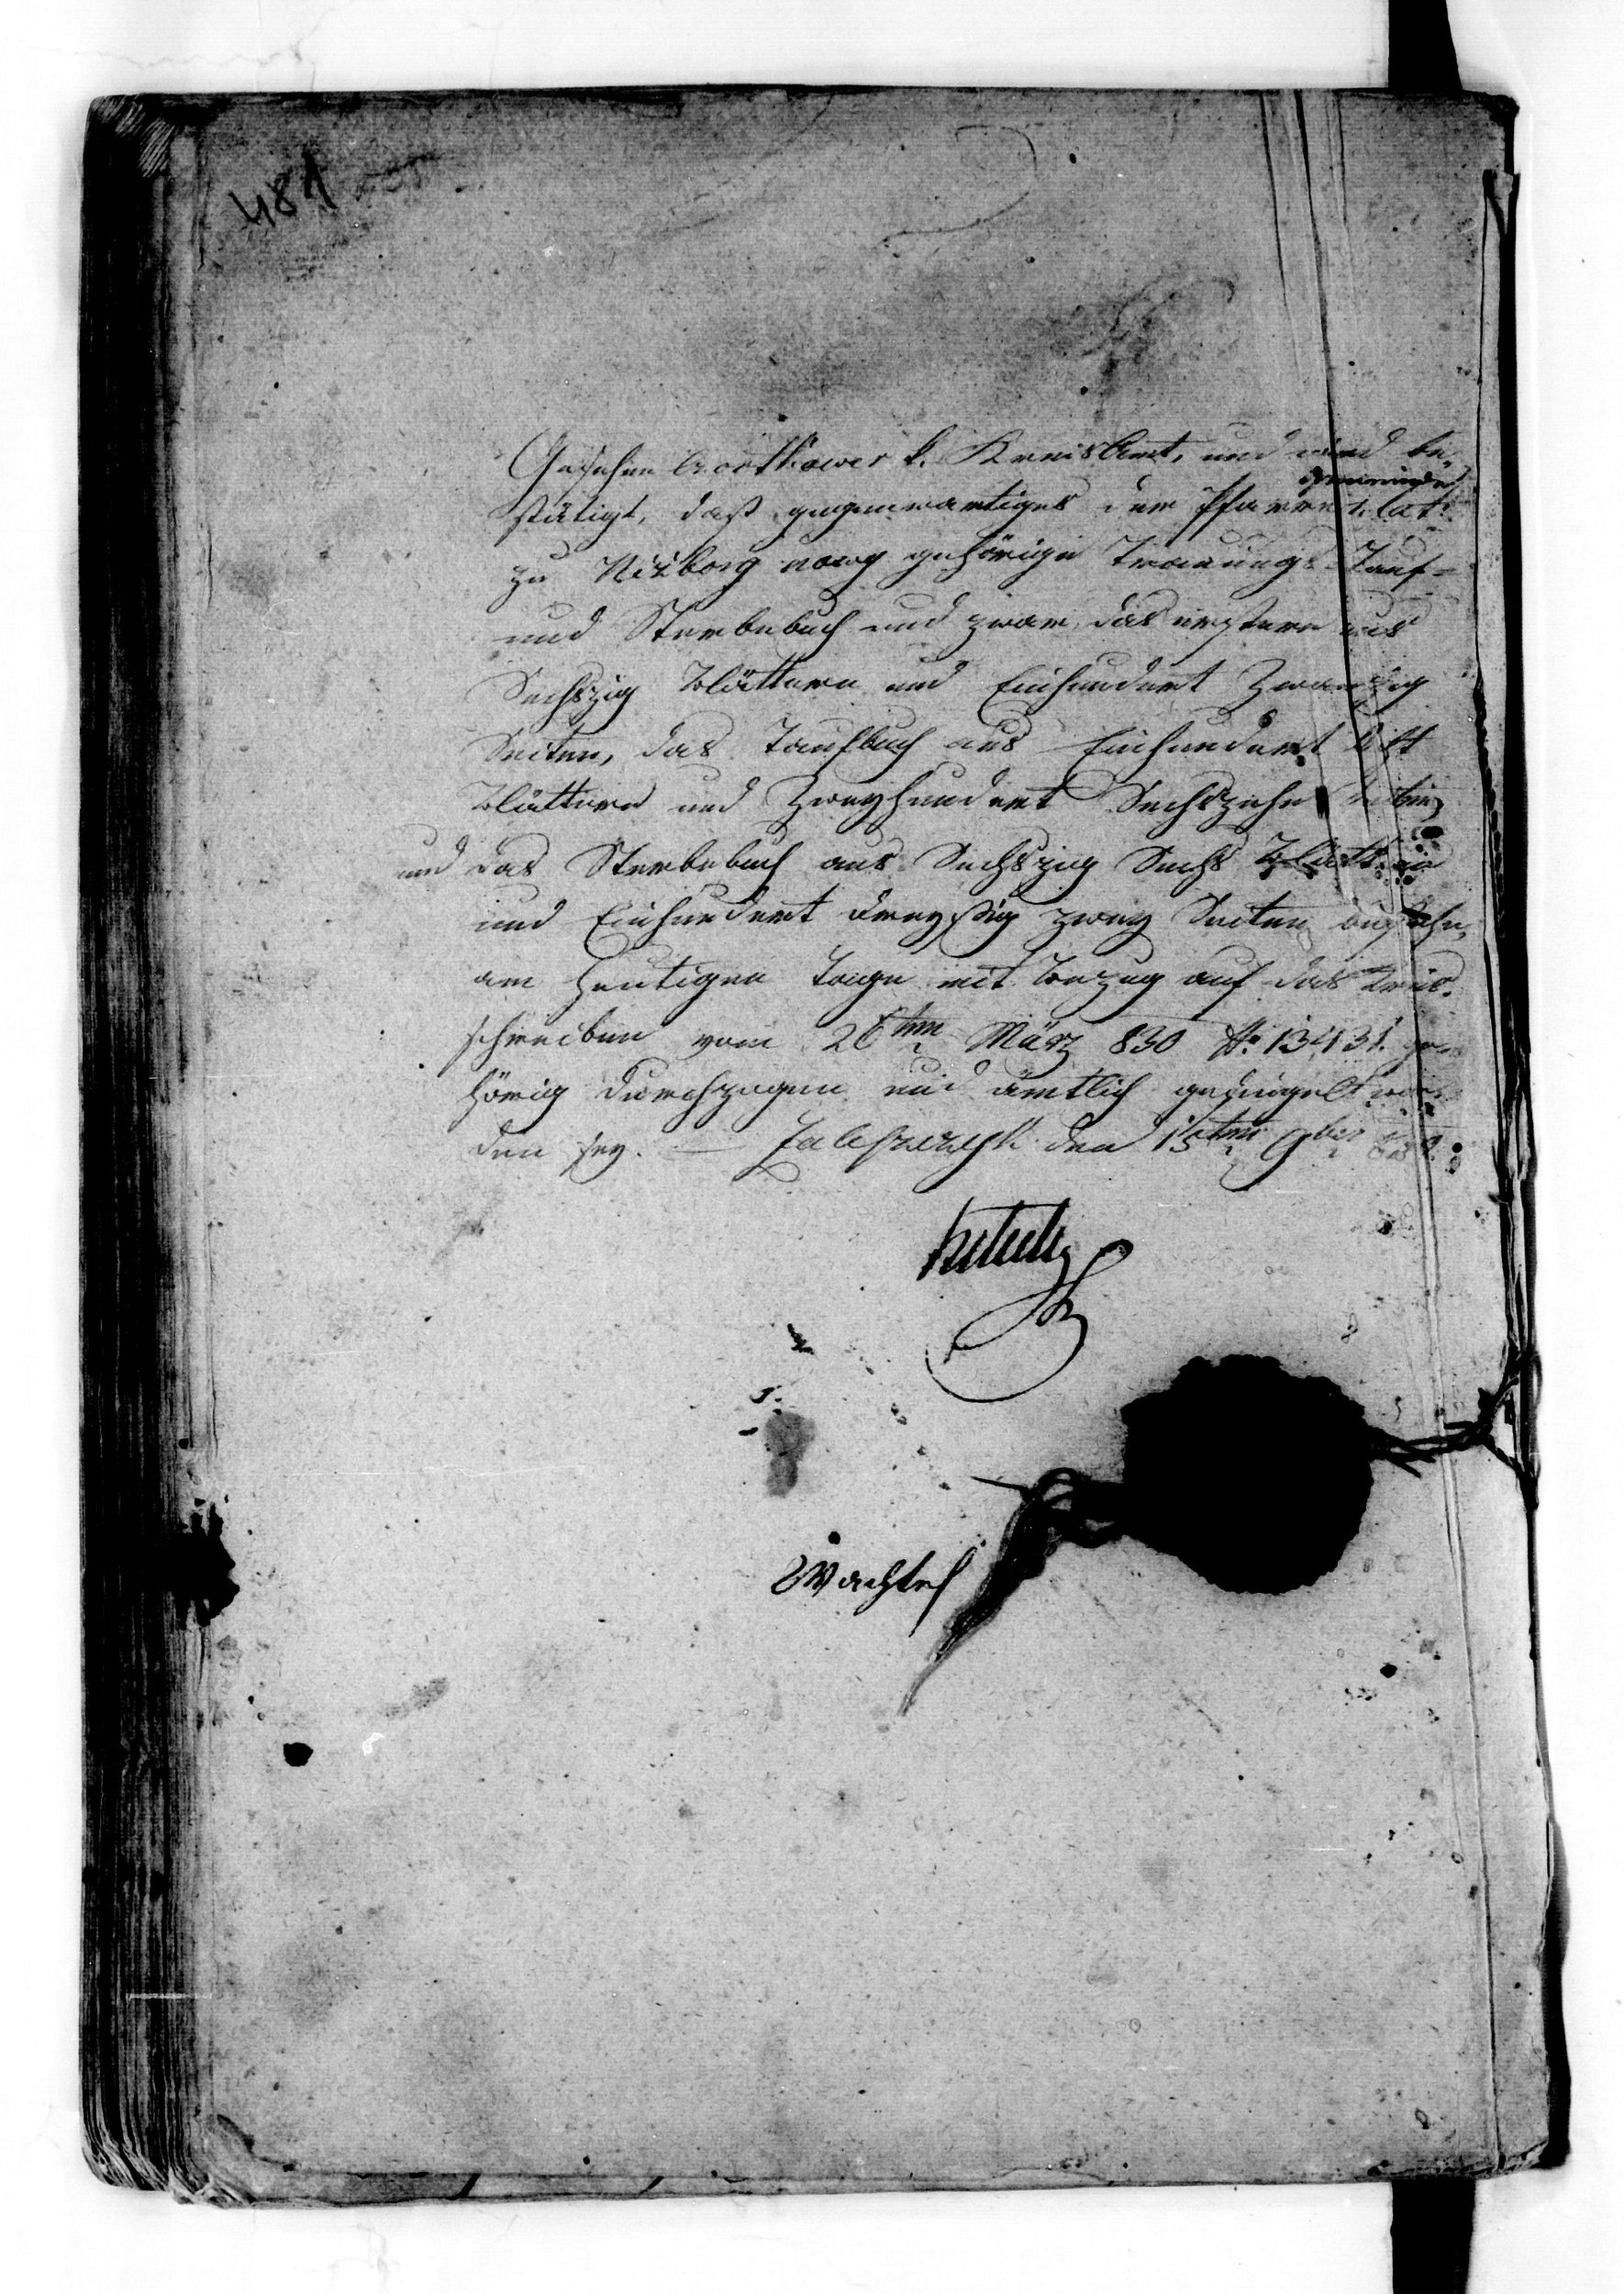 481
Gesehen Czortkower k. KreisAmt, und wird be-
stätigt, daß gegenwärtiges der Pfarre r. lat.
gemeinde
zu Niżborg nowy gehörige Trauungs- Tauf-
und Sterbebuch und zwar, das erstere aus
Sechszig Blättern und Einhundert Zwanzig
Seiten, das Taufbuch aus Einhundert Acht
Blättern und Zweyhundert Sechszehn Seiten
und das Sterbebuch aus Sechszig Sechs Blättern
und Einhundert dreyßig zwey Seiten bestehe,
am heutigen Tage mit Bezug auf das Kreis-
schreiben vom 26ten März 830 No 13431. ge-
hörig durchzogen und ämtlich gesiegelt wor-
den sey. — Zaleszczyk den 15ten 9ber
Wachtel